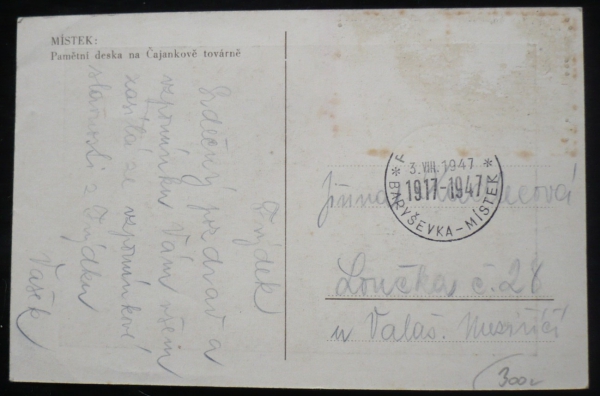 MÍSTEK:
Pamětní deska na Čajankově továrně
Frýdek
Srdečný pozdrav a
vzpomínku Vám všem
zasílá ze vzpomínkové
slavnosti z Frýdku
Vašek
3. VIII. 1947
1917-1947
* BARYŠEVKA - MÍSTEK *
Jiřina
Loučka č. 28
u Valaš. Meziříčí
300,-